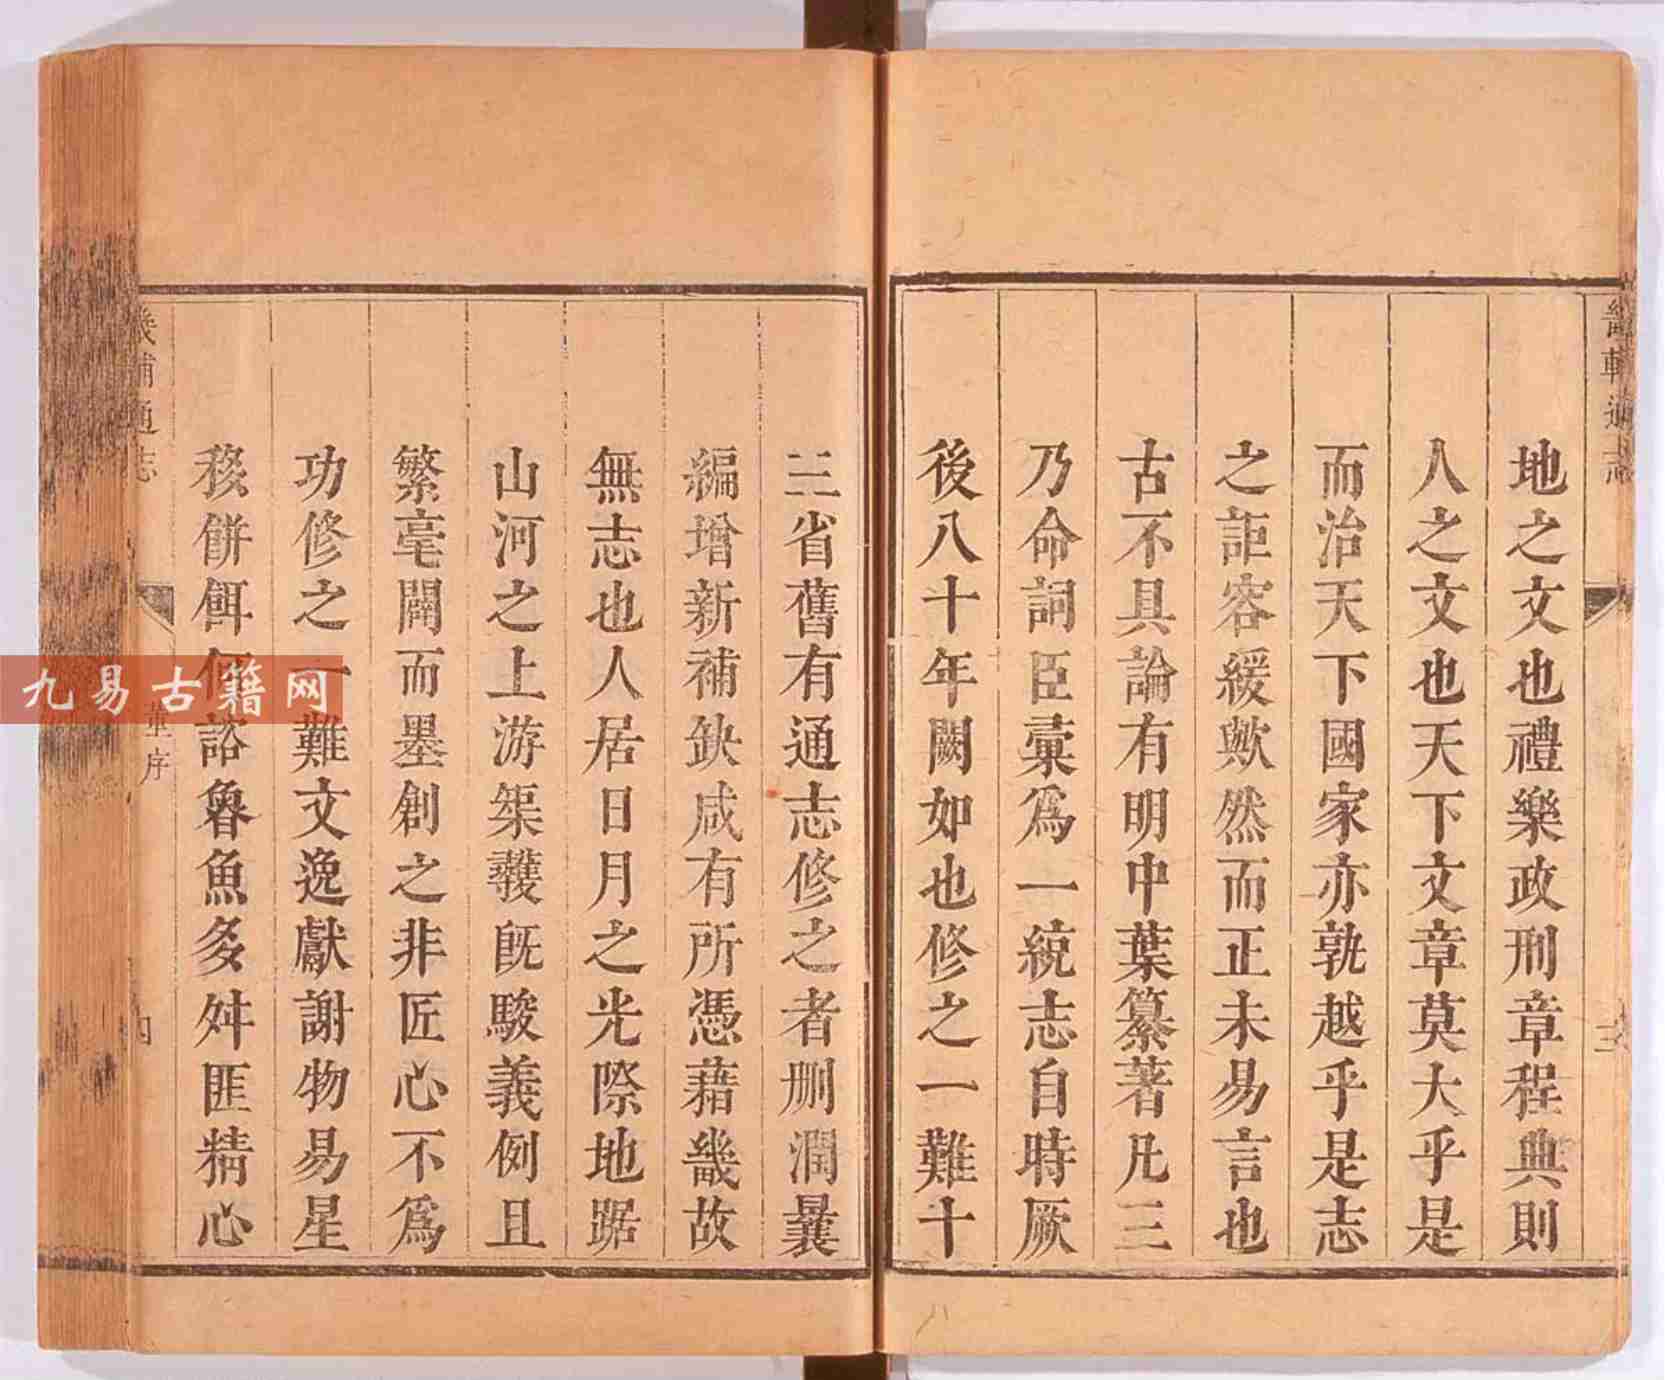 畿輔通志
三
地之文也禮樂政刑章程典則
人之文也天下文章莫大乎是
而治天下國家亦孰越乎是志
之詎容緩歟然而正未易言也
古不具論有明中葉纂著凡三
乃命詞臣彙為一統志自時厥
後八十年闕如也修之一難十
三省舊有通志修之者删潤曩
編增新補缺咸有所憑藉畿故
無志也人居日月之光際地踞
山河之上游榘彠旣駿義例且
繁毫闊而墨創之非匠心不為
功修之一難文逸獻謝物易星
移餅餌 諮魯魚多舛匪精心
畿輔通志
董序
四
九易古籍网